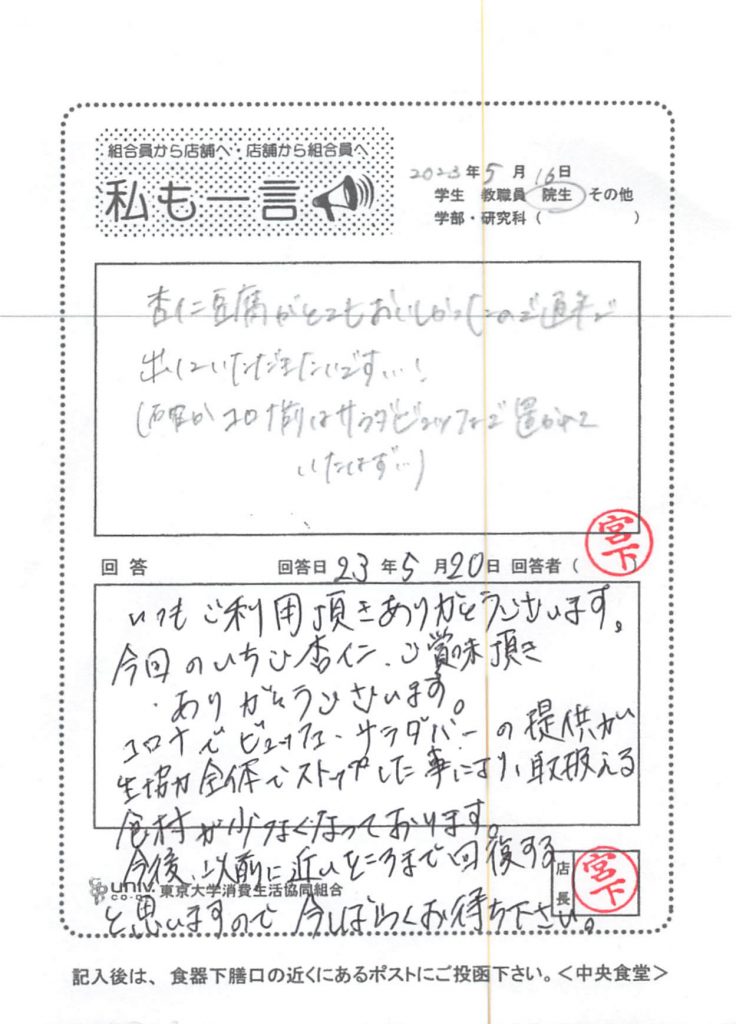 組合員から店舗へ・店舗から組合員へ
私も一言
2023年5月16日
学生 教職員 院生 その他
学部・研究科（ ）
杏仁豆腐がとてもおいしかったので通年で
出していただきたいです…！
(確かコロナ前はサラダビュッフェで置かれて
いたはず…)
回答 回答日 23年5月20日 回答者（宮下）
いつもご利用頂きありがとうございます。
今回のいちご杏仁、ご賞味頂き
ありがとうございます。
コロナでビュッフェ・サラダバーの提供が
生協全体でストップした事により、取扱える
食材が少なくなっております。
今後、以前に近いところまで回復する
univ. co-op 東京大学消費生活協同組合
店長 宮下
と思いますので今しばらくお待ち下さい。
記入後は、食器下膳口の近くにあるポストにご投函下さい。＜中央食堂＞